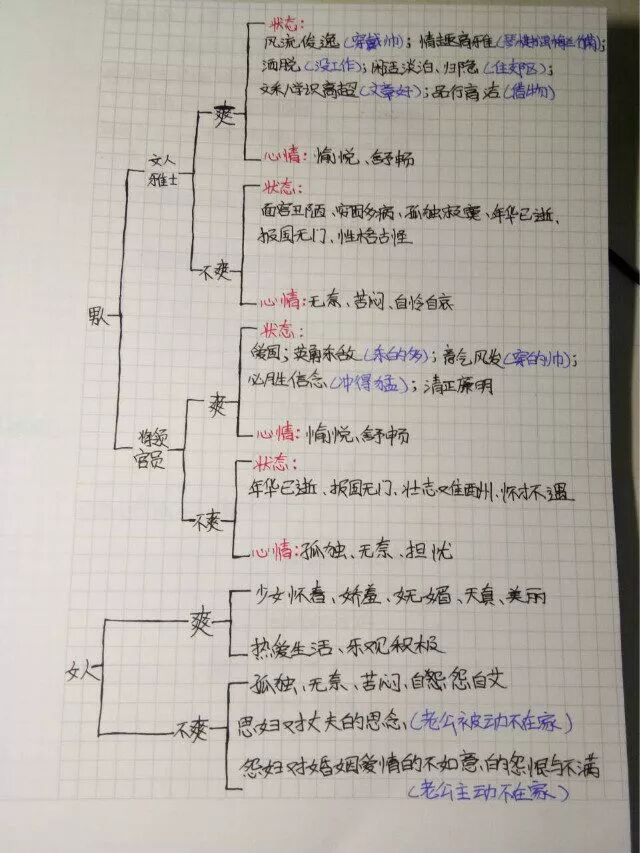 状态：
风流俊逸（穿戴帅）；情趣高雅
洒脱（没工作）；闲适淡泊、归隐（住郊区）；
文采/学识高超（文章好）；品行高洁（借物）
爽
心情：愉悦、舒畅
文人
雅士
状态：
面容丑陋、穷困多病、孤独寂寞、年华已逝、
报国无门、性格古怪
不爽
心情：无奈、苦闷、自怜自哀
男人
状态：
爱国；英勇杀敌（杀的多）；意气风发（穿的帅）；
必胜信念（冲得猛）；清正廉明
爽
心情：愉悦、舒畅
将领
官员
状态：
年华已逝、报国无门、壮志难酬、怀才不遇
不爽
心情：孤独、无奈、担忧
少女怀春、娇羞、妩媚、天真、美丽
爽
热爱生活、乐观积极
女人
孤独、无奈、苦闷、自怨怨自艾
不爽
思妇对丈夫的思念（老公被动不在家）
怨妇对婚姻爱情的不如意的怨恨与不满
（老公主动不在家）